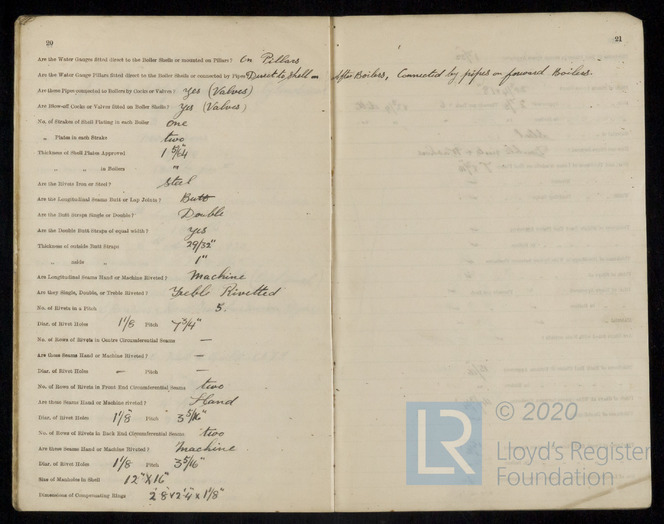 20
Are the Water Gauges fitted direct to the Boiler Shells or mounted on Pillars? On Pillars
Are the Water Gauge Pillars fitted direct to the Boiler Shells or connected by Pipes? Direct to Shell on After Boilers, Connected by pipes on forward Boilers.
Are these Pipes connected to Boilers by Cocks or Valves? Yes (Valves)
Are Blow-off Cocks or Valves fitted on Boiler Shells? Yes (Valves)
No. of Strakes of Shell Plating in each Boiler One
„ Plates in each Strake two
Thickness of Shell Plates Approved 1 5/64
„ „ in Boilers "
Are the Rivets Iron or Steel? Steel
Are the Longitudinal Seams Butt or Lap Joints? Butt
Are the Butt Straps Single or Double? Double
Are the Double Butt Straps of equal width? Yes
Thickness of outside Butt Straps 29/32"
„ inside „ 1"
Are Longitudinal Seams Hand or Machine Riveted? Machine
Are they Single, Double, or Treble Riveted? Treble Rivetted
No. of Rivets in a Pitch 5.
Diar. of Rivet Holes 1 1/8 Pitch 7 3/4"
No. of Rows of Rivets in Centre Circumferential Seams —
Are these Seams Hand or Machine Riveted? —
Diar. of Rivet Holes — Pitch —
No. of Rows of Rivets in Front End Circumferential Seams two
Are these Seams Hand or Machine riveted? Hand
Diar. of Rivet Holes 1 1/8" Pitch 3 5/16"
No. of Rows of Rivets in Back End Circumferential Seams two
Are these Seams Hand or Machine Riveted? Machine
Diar. of Rivet Holes 1 1/8 Pitch 3 5/16"
Size of Manholes in Shell 12" X 16"
Dimensions of Compensating Rings 2'8" x 2'4" x 1 1/8"
21
LR © 2020
Lloyd's Register
Foundation